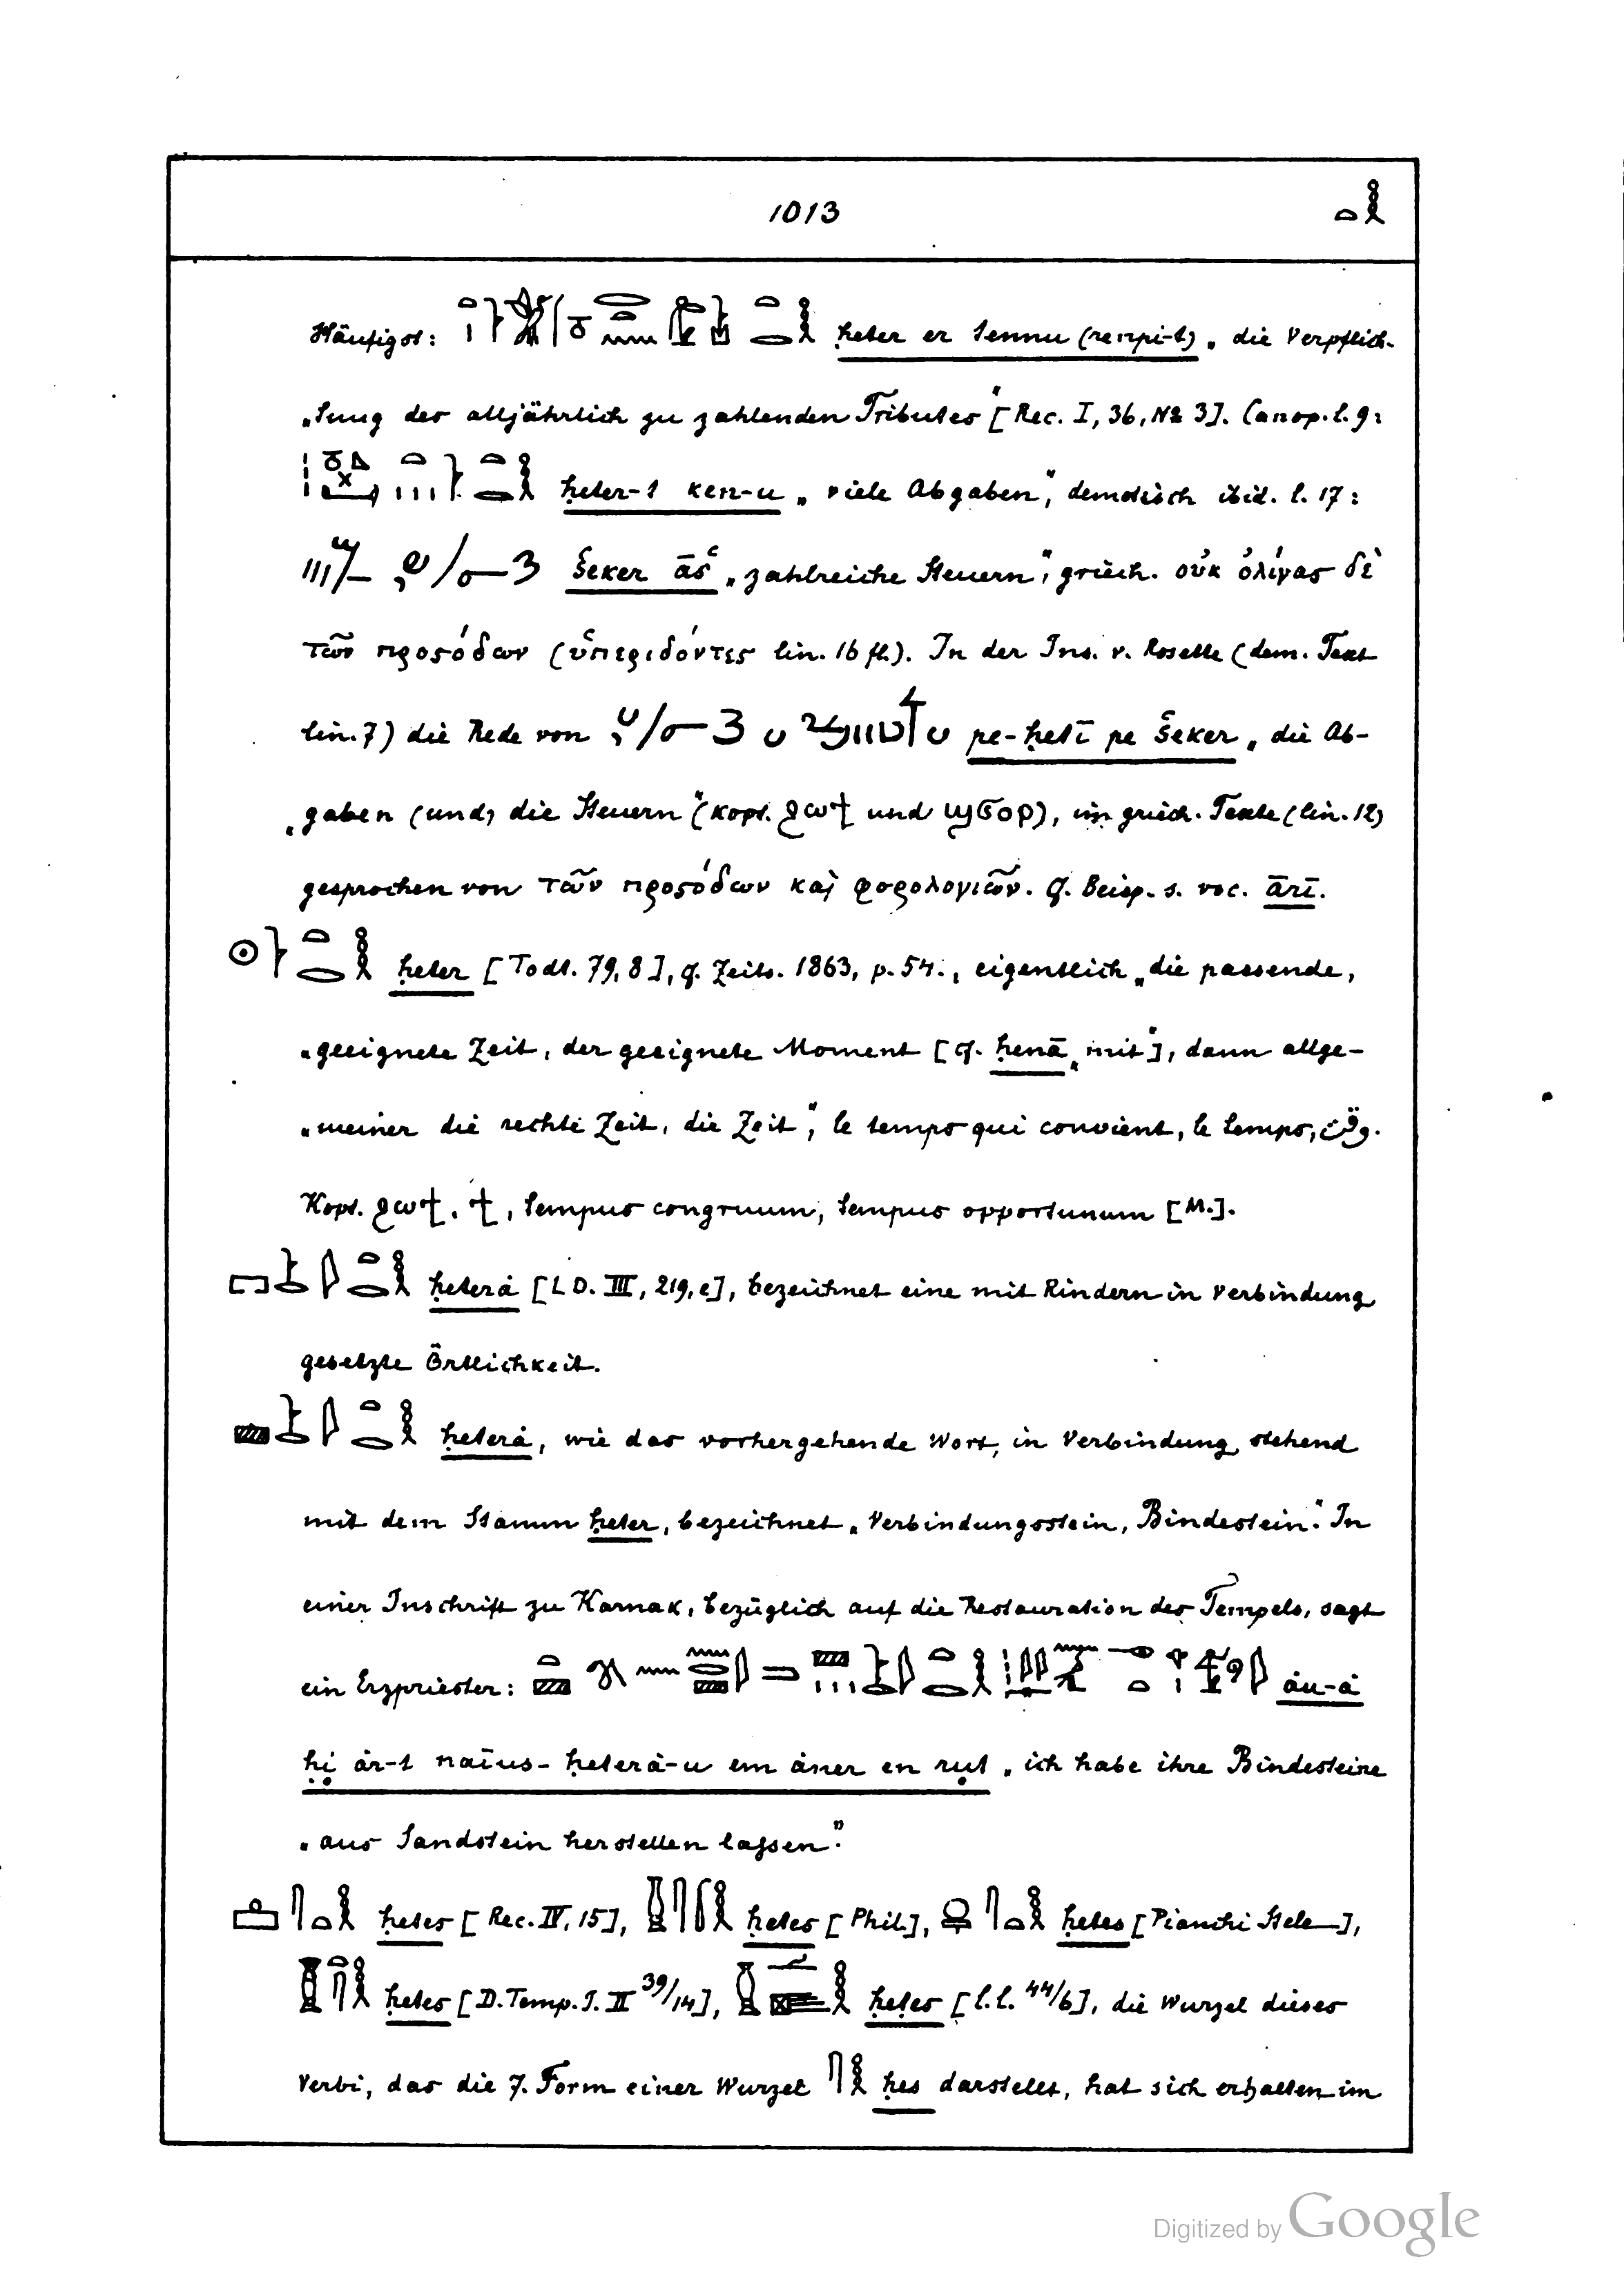 1013
Häufigst: ḥeter er tennu (renpi-t) „die Verpflich-
„tung des alljährlich zu zahlenden Tributes“ [Rec. I, 36, № 3]. Canop. l. 9:
ḥeter-t ken-u „viele Abgaben“, demotisch ibid. l. 17:
šeker āš „zahlreiche Steuern“, griech. οὐκ ὀλίγας δὲ
τῶν προσόδων (ὑπεριδόντες lin. 16 fl.). In der Ins. v. Rosette (dem. Text
lin. 7) die Rede von pe-ḥetī pe šeker „die Ab-
„gaben (und) die Steuern“ (kopt. ϩωϯ und ϣϭⲟⲣ), im griech. Texte (lin. 12)
gesprochen von τῶν προσόδων καὶ φορολογιῶν. cf. Beisp. s. voc. ārī.
ḥeter [Todt. 79, 8], cf. Zeits. 1863, p. 54., eigentlich „die passende,
„geeignete Zeit, der geeignete Moment [cf. ḥenā „mit“], dann allge-
„meiner die rechte Zeit, die Zeit“, le temps qui convient, le temps, وقت.
Kopt. ϩωϯ, ϯ, tempus congruum, tempus opportunum [M.].
ḥeterȧ [LD. III, 219, e], bezeichnet eine mit Rindern in Verbindung
gesetzte Örtlichkeit.
ḥeterȧ, wie das vorhergehende Wort, in Verbindung stehend
mit dem Stamm ḥeter, bezeichnet „Verbindungsstein, Bindestein“. In
einer Inschrift zu Karnak, bezüglich auf die Restauration des Tempels, sagt
ein Erzpriester: ȧu-ȧ
ḥi ȧr-t naīus-ḥeterȧ-u em ȧner en ruṭ „ich habe ihre Bindesteine
„aus Sandstein herstellen lassen“.
ḥetes [Rec. IV, 15], ḥetes [Phil.], ḥetes [Pianchi Stele],
ḥetes [D. Temp. I. II 39/14], ḥeṭes [l.l. 44/6], die Wurzel dieses
Verbi, das die 7. Form einer Wurzel ḥes darstellt, hat sich erhalten im
Digitized by Google